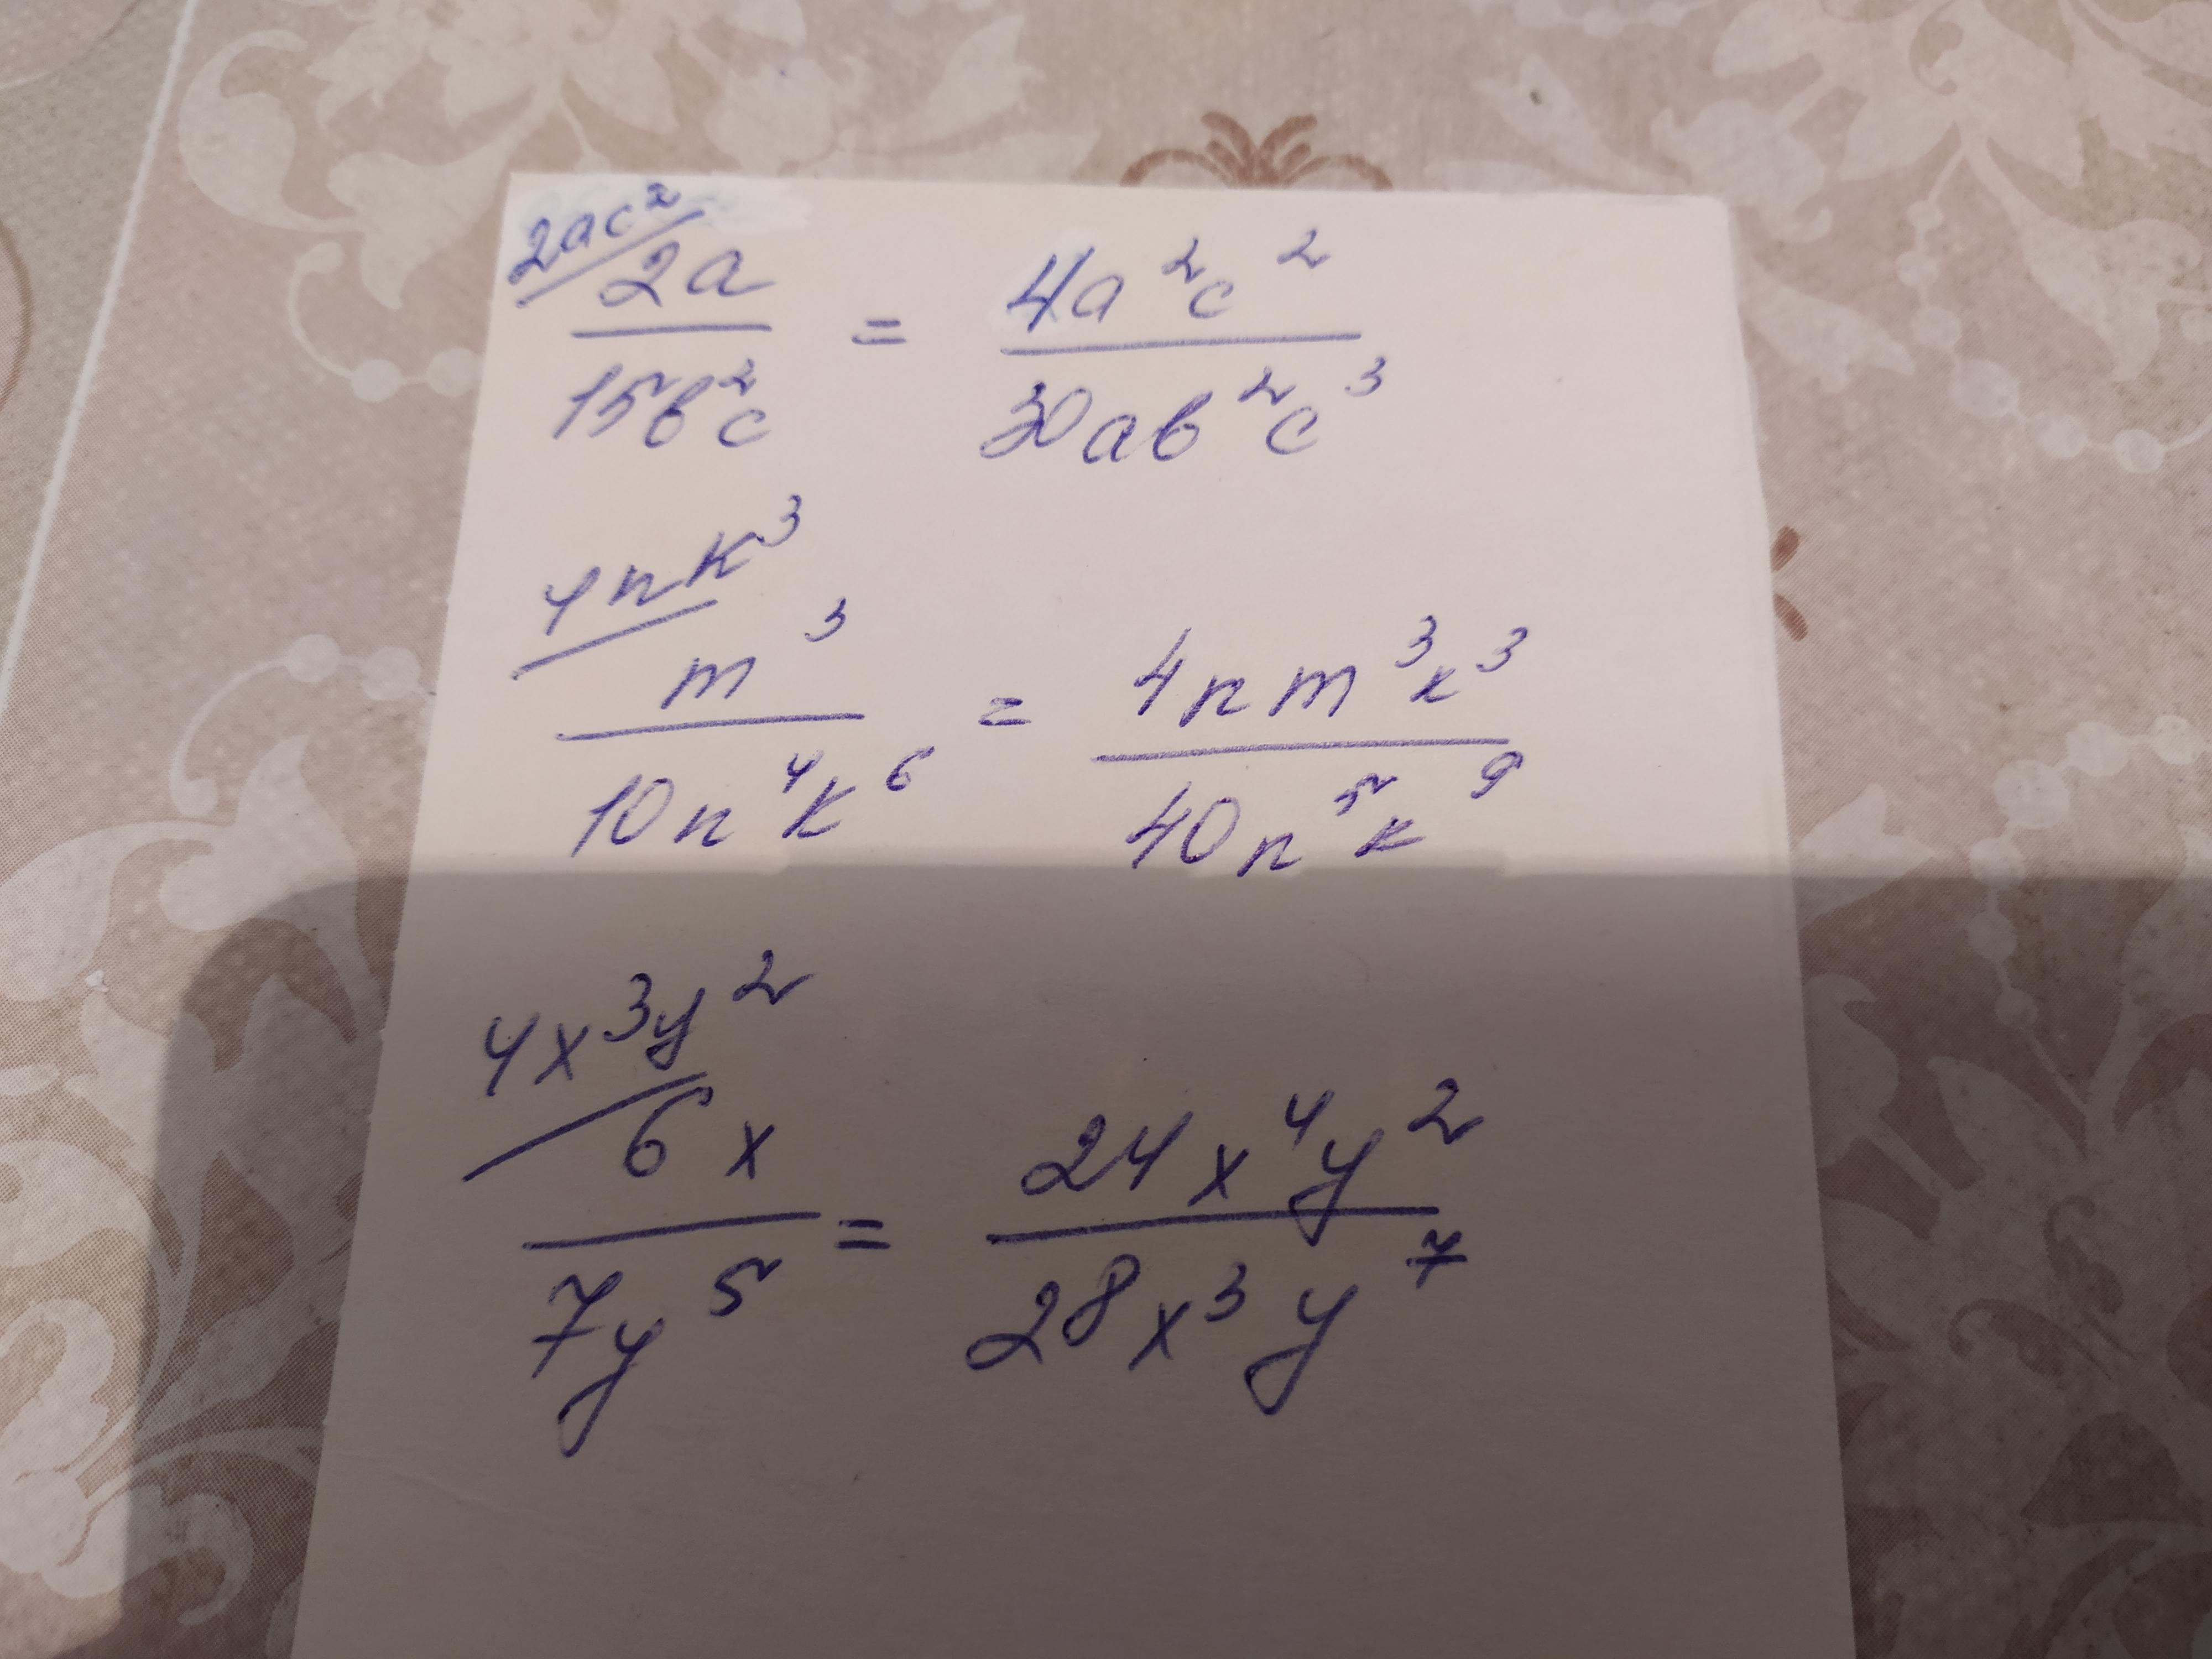 2ac²/
2a/15b²c = 4a²c²/30ab²c³
4nk³/
m³/10n⁴k⁶ = 4nm³k³/40n⁵k⁹
4x³y²/
6x/7y⁵ = 24x⁴y²/28x³y⁷